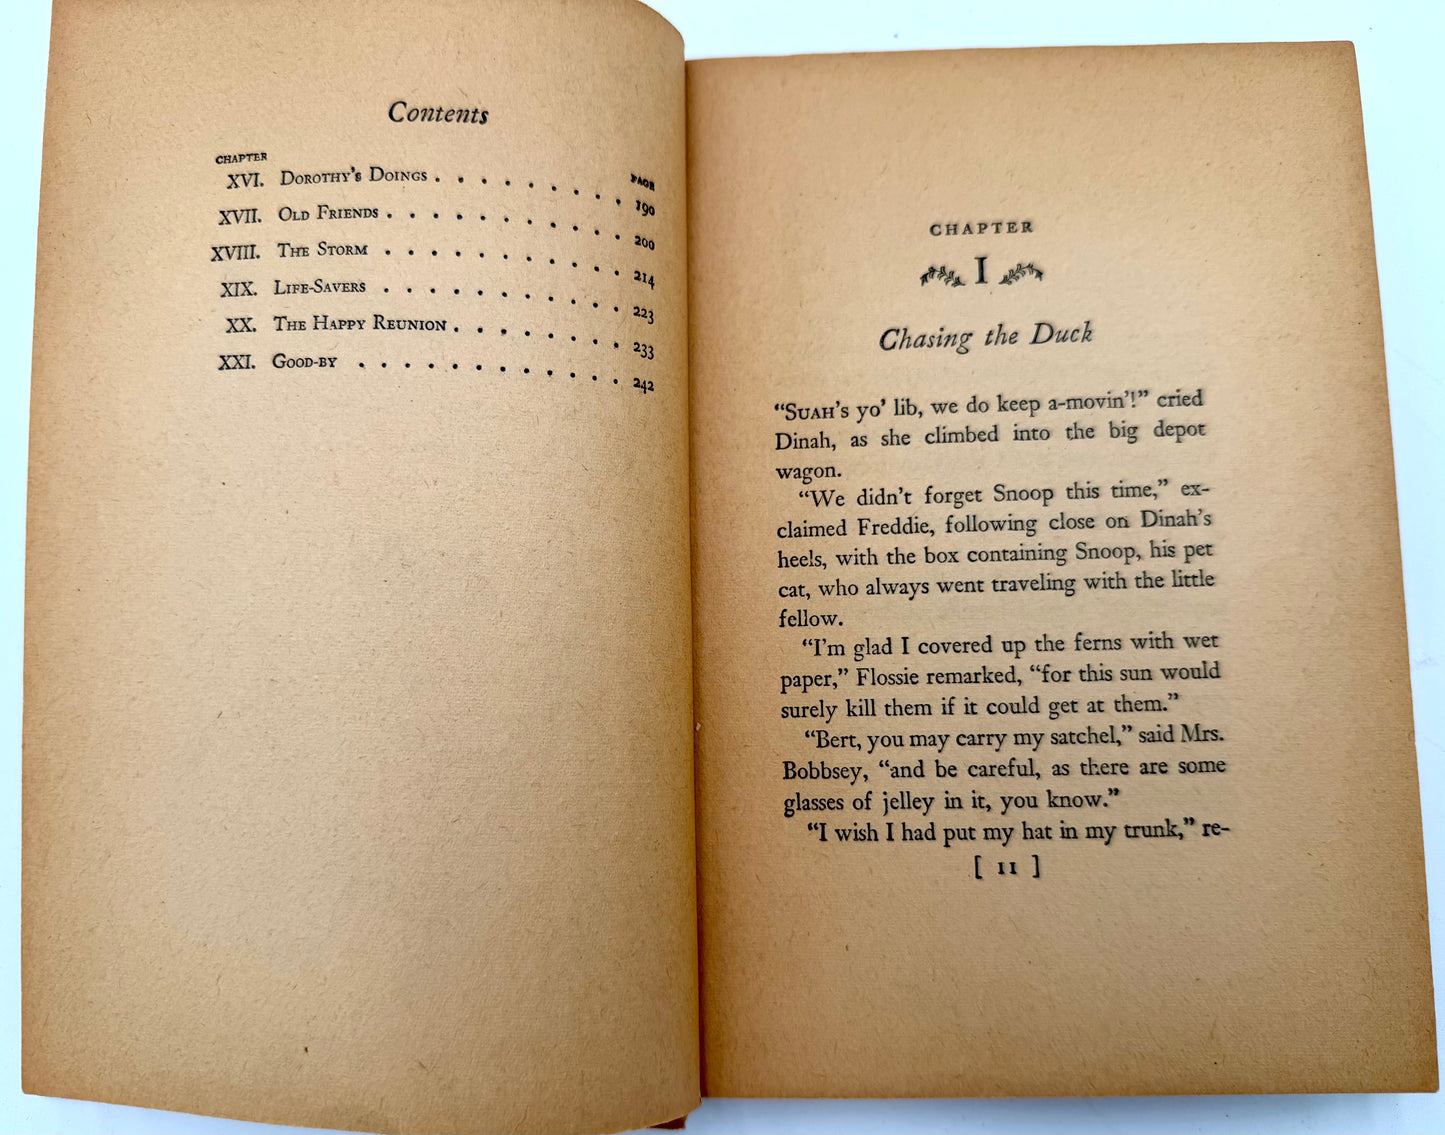 Contents
CHAPTER PAGE
XVI. DOROTHY'S DOINGS . . . . . . . . . 190
XVII. OLD FRIENDS . . . . . . . . . . . 200
XVIII. THE STORM . . . . . . . . . . . 214
XIX. LIFE-SAVERS . . . . . . . . . . . 223
XX. THE HAPPY REUNION . . . . . . . . 233
XXI. GOOD-BY . . . . . . . . . . . . 242
CHAPTER
I
Chasing the Duck
“SUAH’S yo’ lib, we do keep a-movin’!” cried
Dinah, as she climbed into the big depot
wagon.
“We didn’t forget Snoop this time,” ex-
claimed Freddie, following close on Dinah’s
heels, with the box containing Snoop, his pet
cat, who always went traveling with the little
fellow.
“I’m glad I covered up the ferns with wet
paper,” Flossie remarked, “for this sun would
surely kill them if it could get at them.”
“Bert, you may carry my satchel,” said Mrs.
Bobbsey, “and be careful, as there are some
glasses of jelley in it, you know.”
“I wish I had put my hat in my trunk,” re-
[ 11 ]